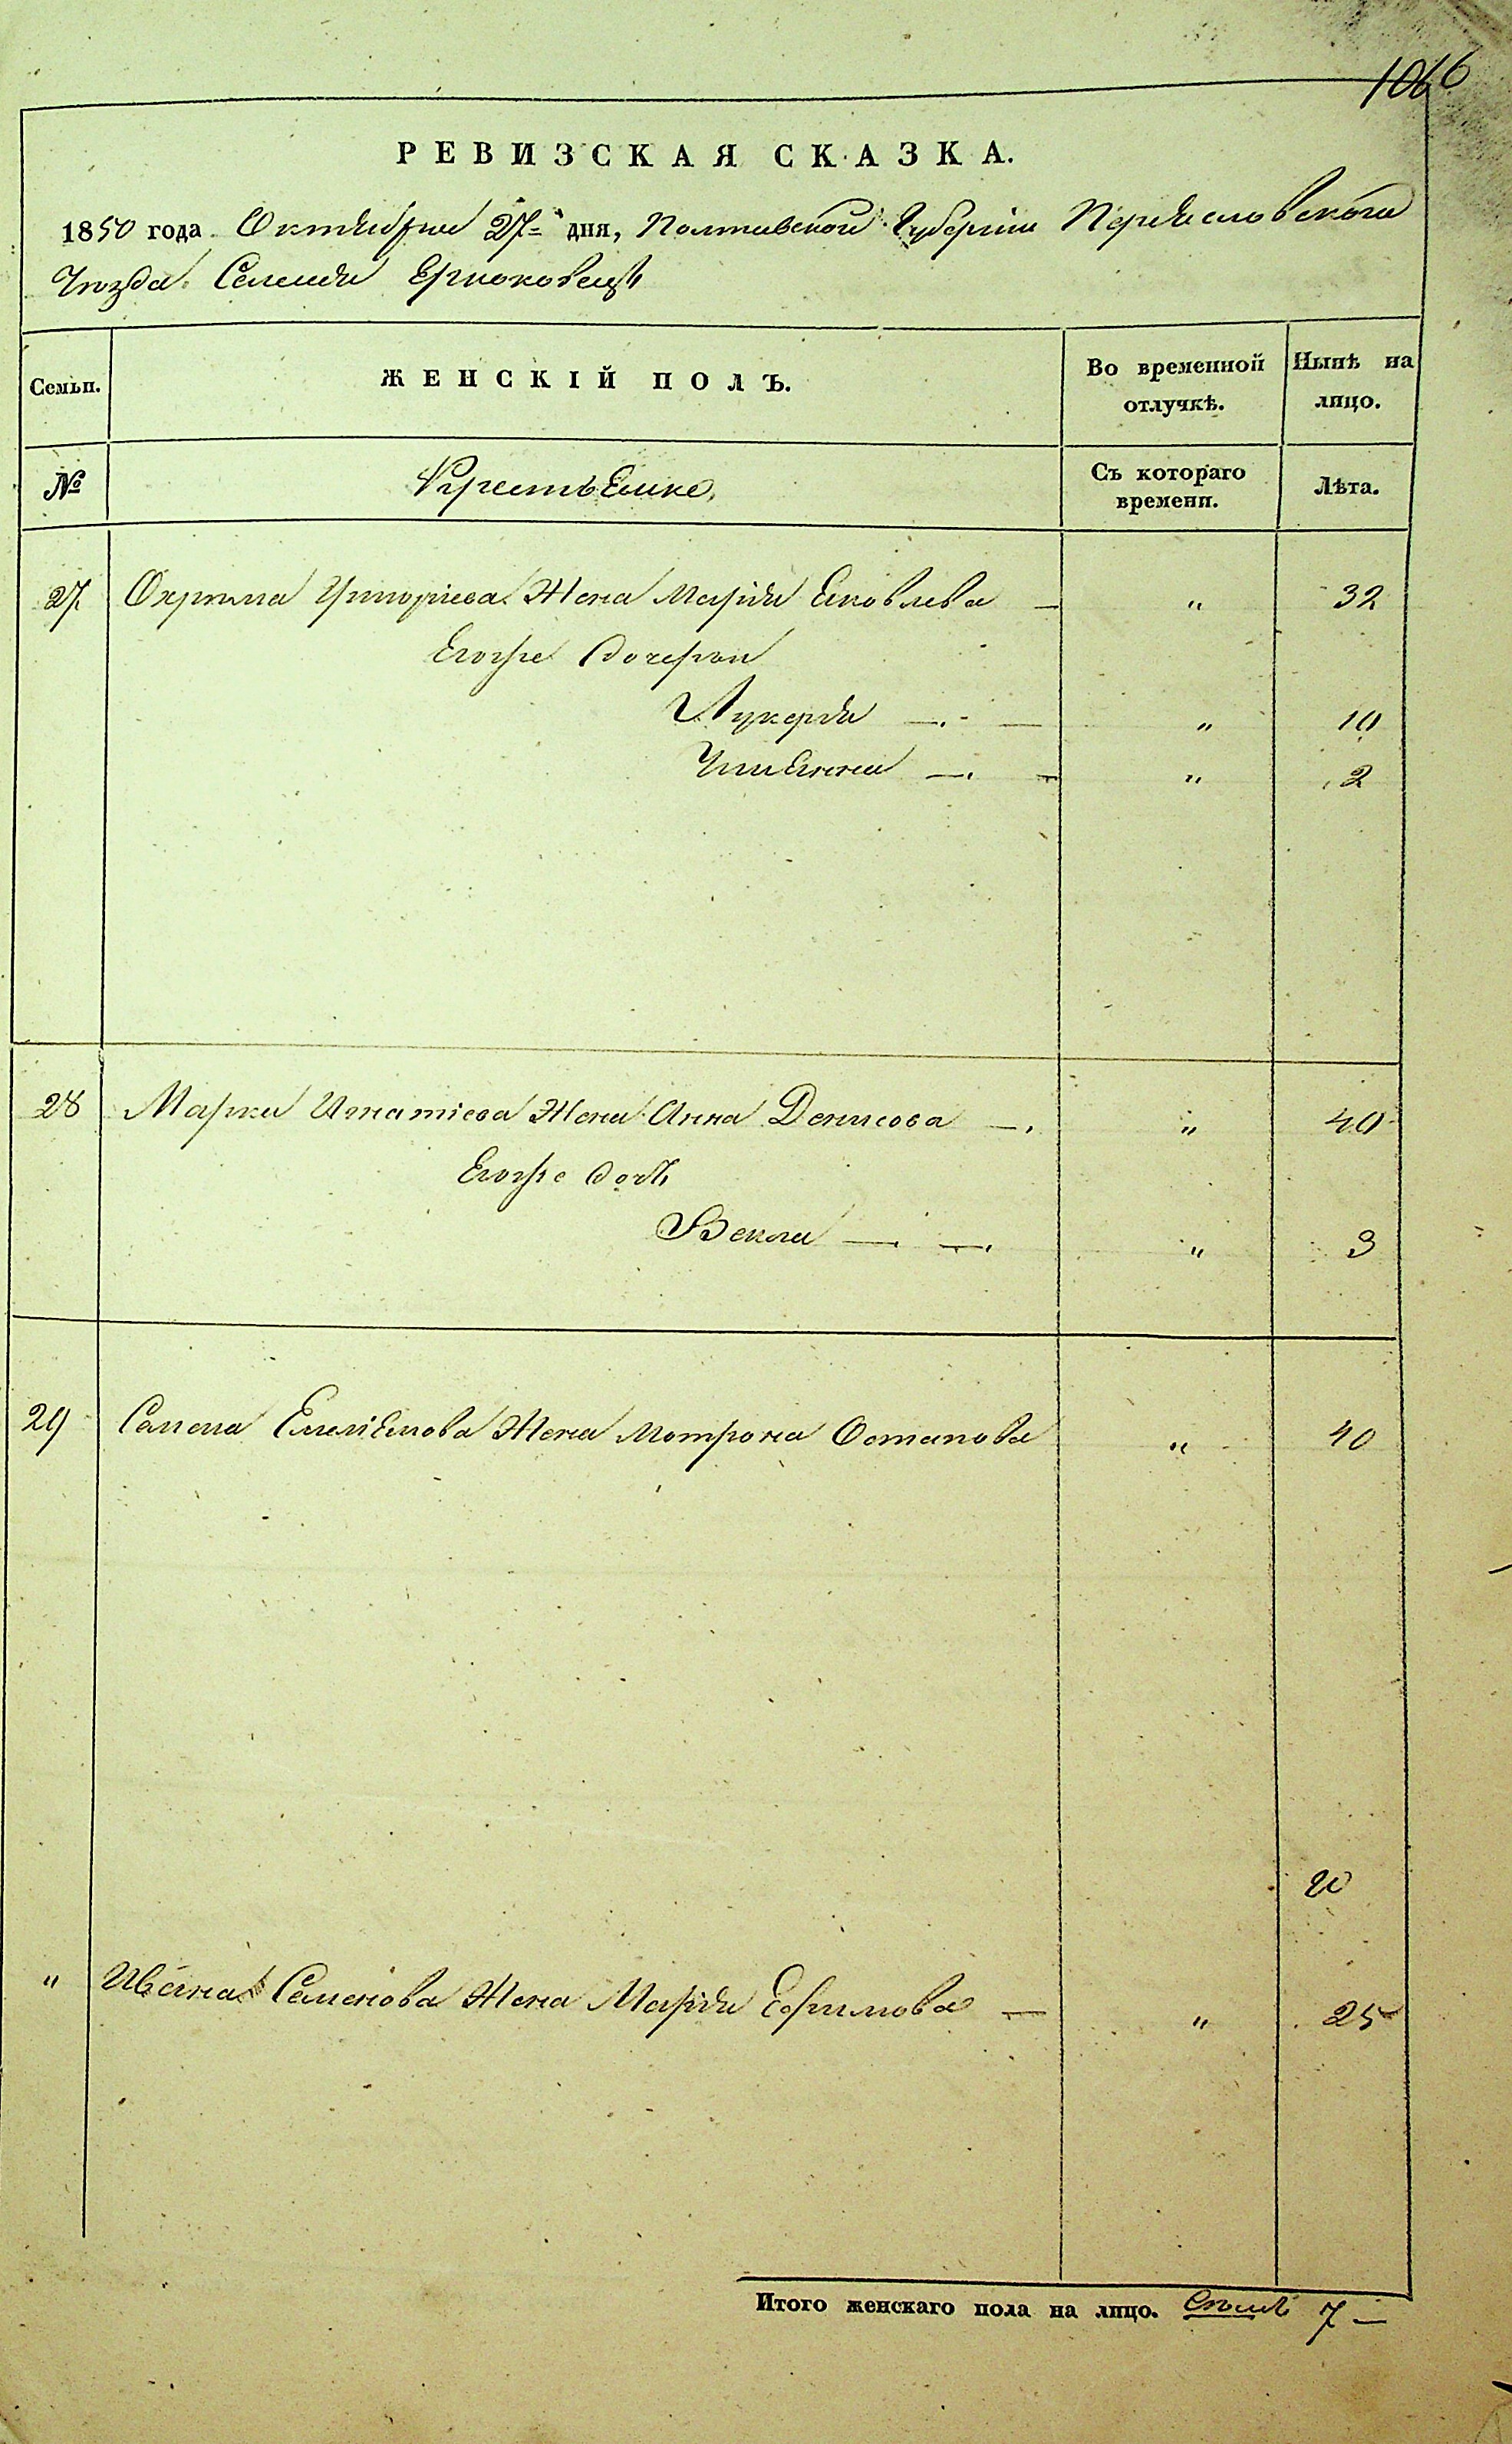 1066
РЕВИЗСКАЯ СКАЗКА.
1850 года Октября 27 дня, Полтавской Губерніи Переяславского
Уѣзда Селенія Ерковецъ
Семьи.
ЖЕНСКІЙ ПОЛЪ.
Во временной отлучкѣ.
Нынѣ на лицо.
№
Крестьяне
Съ котораго времени.
Лѣта.
27 Охрима Григоріева Жена Марія Яковлева — " 32
Егоже дочери
Лукерія — — " 10
Ульянна — — " 2
28 Марка Игнатіева Жена Анна Денисова — " 40
Егоже дочь
Векла — — " 3
29 Семена Емельянова Жена Мотрона Остапова " 40
" Ивана Семенова Жена Марія Ефимова — " 25
Итого женскаго пола на лицо. 7 —